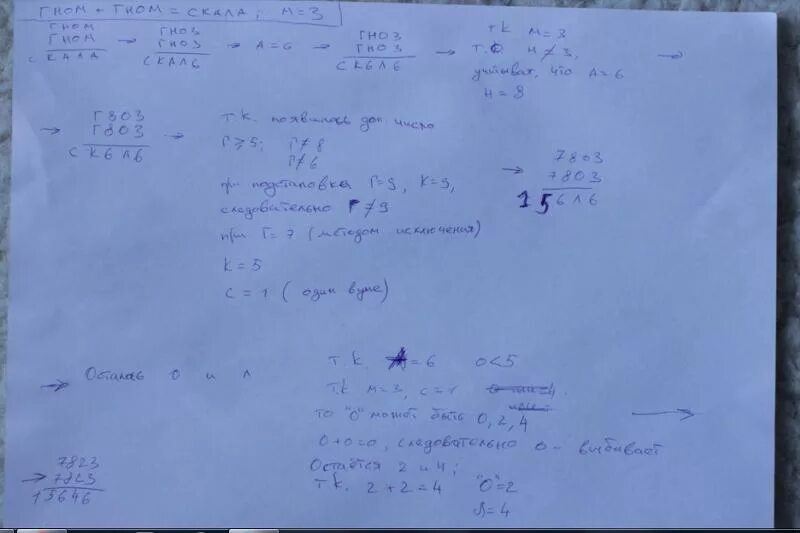 ГНОМ + ГНОМ = СКАЛА; М=3
ГНОМ
ГНОМ
СКАЛА
→ ГНО3
ГНО3
СКАЛ6
→ А=6 →
ГНО3
ГНО3
СК6Л6
→ т.к М=3
т.о Н≠3,
учитывая, что А=6
Н=8
→
→ Г8О3
Г8О3
СК6Л6
→ т.к. появилось доп. число
Г≥5; Г≠8
Г≠6
при подстановке Г=9, К=9,
следовательно Г≠9
при Г=7 (методом исключения)
К=5
С=1 (один в уме)
→ 7803
7803
156Л6
→ Осталось О и Л
т.к. А=6 О<5
т.к М=3, С=1
то "О" может быть 0, 2, 4
0+0=0, следовательно 0 - выбывает
Остаётся 2 и 4;
т.к. 2+2=4 "О"=2
Л=4
→
→ 7823
7823
15646